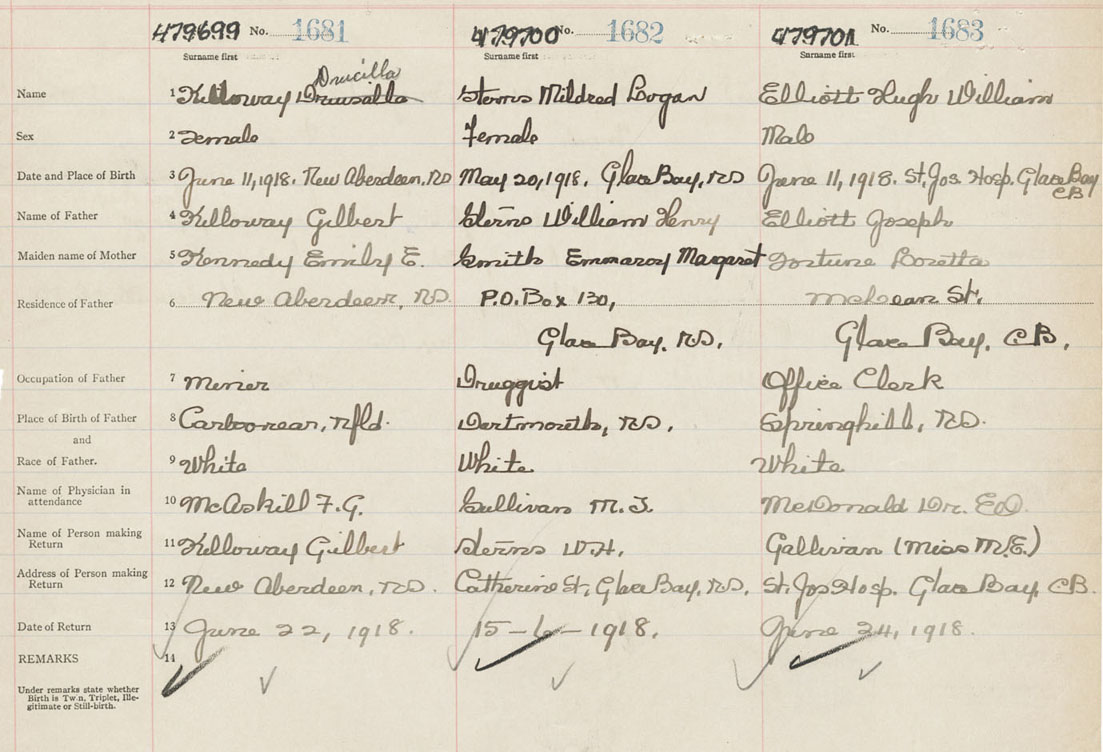 479699 No. 1681 479700 No. 1682 479701 No. 1683
Surname first Surname first Surname first
Drucilla
Name 1 Killoway Drusalla Sterns Mildred Logan Elliott Hugh William
Sex 2 Female Female Male
Date and Place of Birth 3 June 11, 1918. New Aberdeen, N.S May 20, 1918. Glace Bay, N.S June 11, 1918. St. Jos. Hosp. Glace Bay
CB
Name of Father 4 Killoway Gilbert Sterns William Henry Elliott Joseph
Maiden name of Mother 5 Kennedy Emily E. Smith Margaret Fortune Loretta
Residence of Father 6 New Aberdeen, N.S. P.O. Box 130, McLean St.
Glace Bay, N.S. Glace Bay, C.B.
Occupation of Father 7 Miner Druggist Office Clerk
Place of Birth of Father 8 Carbonear, Nfld. Dartmouth, N.S. Springhill, N.S.
and
Race of Father. 9 White White White
Name of Physician in
attendance 10 McAskill F.G. Sullivan M.T. McDonald Dr. E.O.
Name of Person making
Return 11 Killoway Gilbert Sterns W.H. Gallivan (Miss M.E.)
Address of Person making
Return 12 New Aberdeen, N.S. Catherine St, Glace Bay, N.S. St. Jos Hosp. Glace Bay, C.B.
Date of Return 13 June 22, 1918. 15-6-1918. June 24, 1918.
REMARKS 14
Under remarks state whether
Birth is Twin, Triplet, Ille-
gitimate or Still-birth.